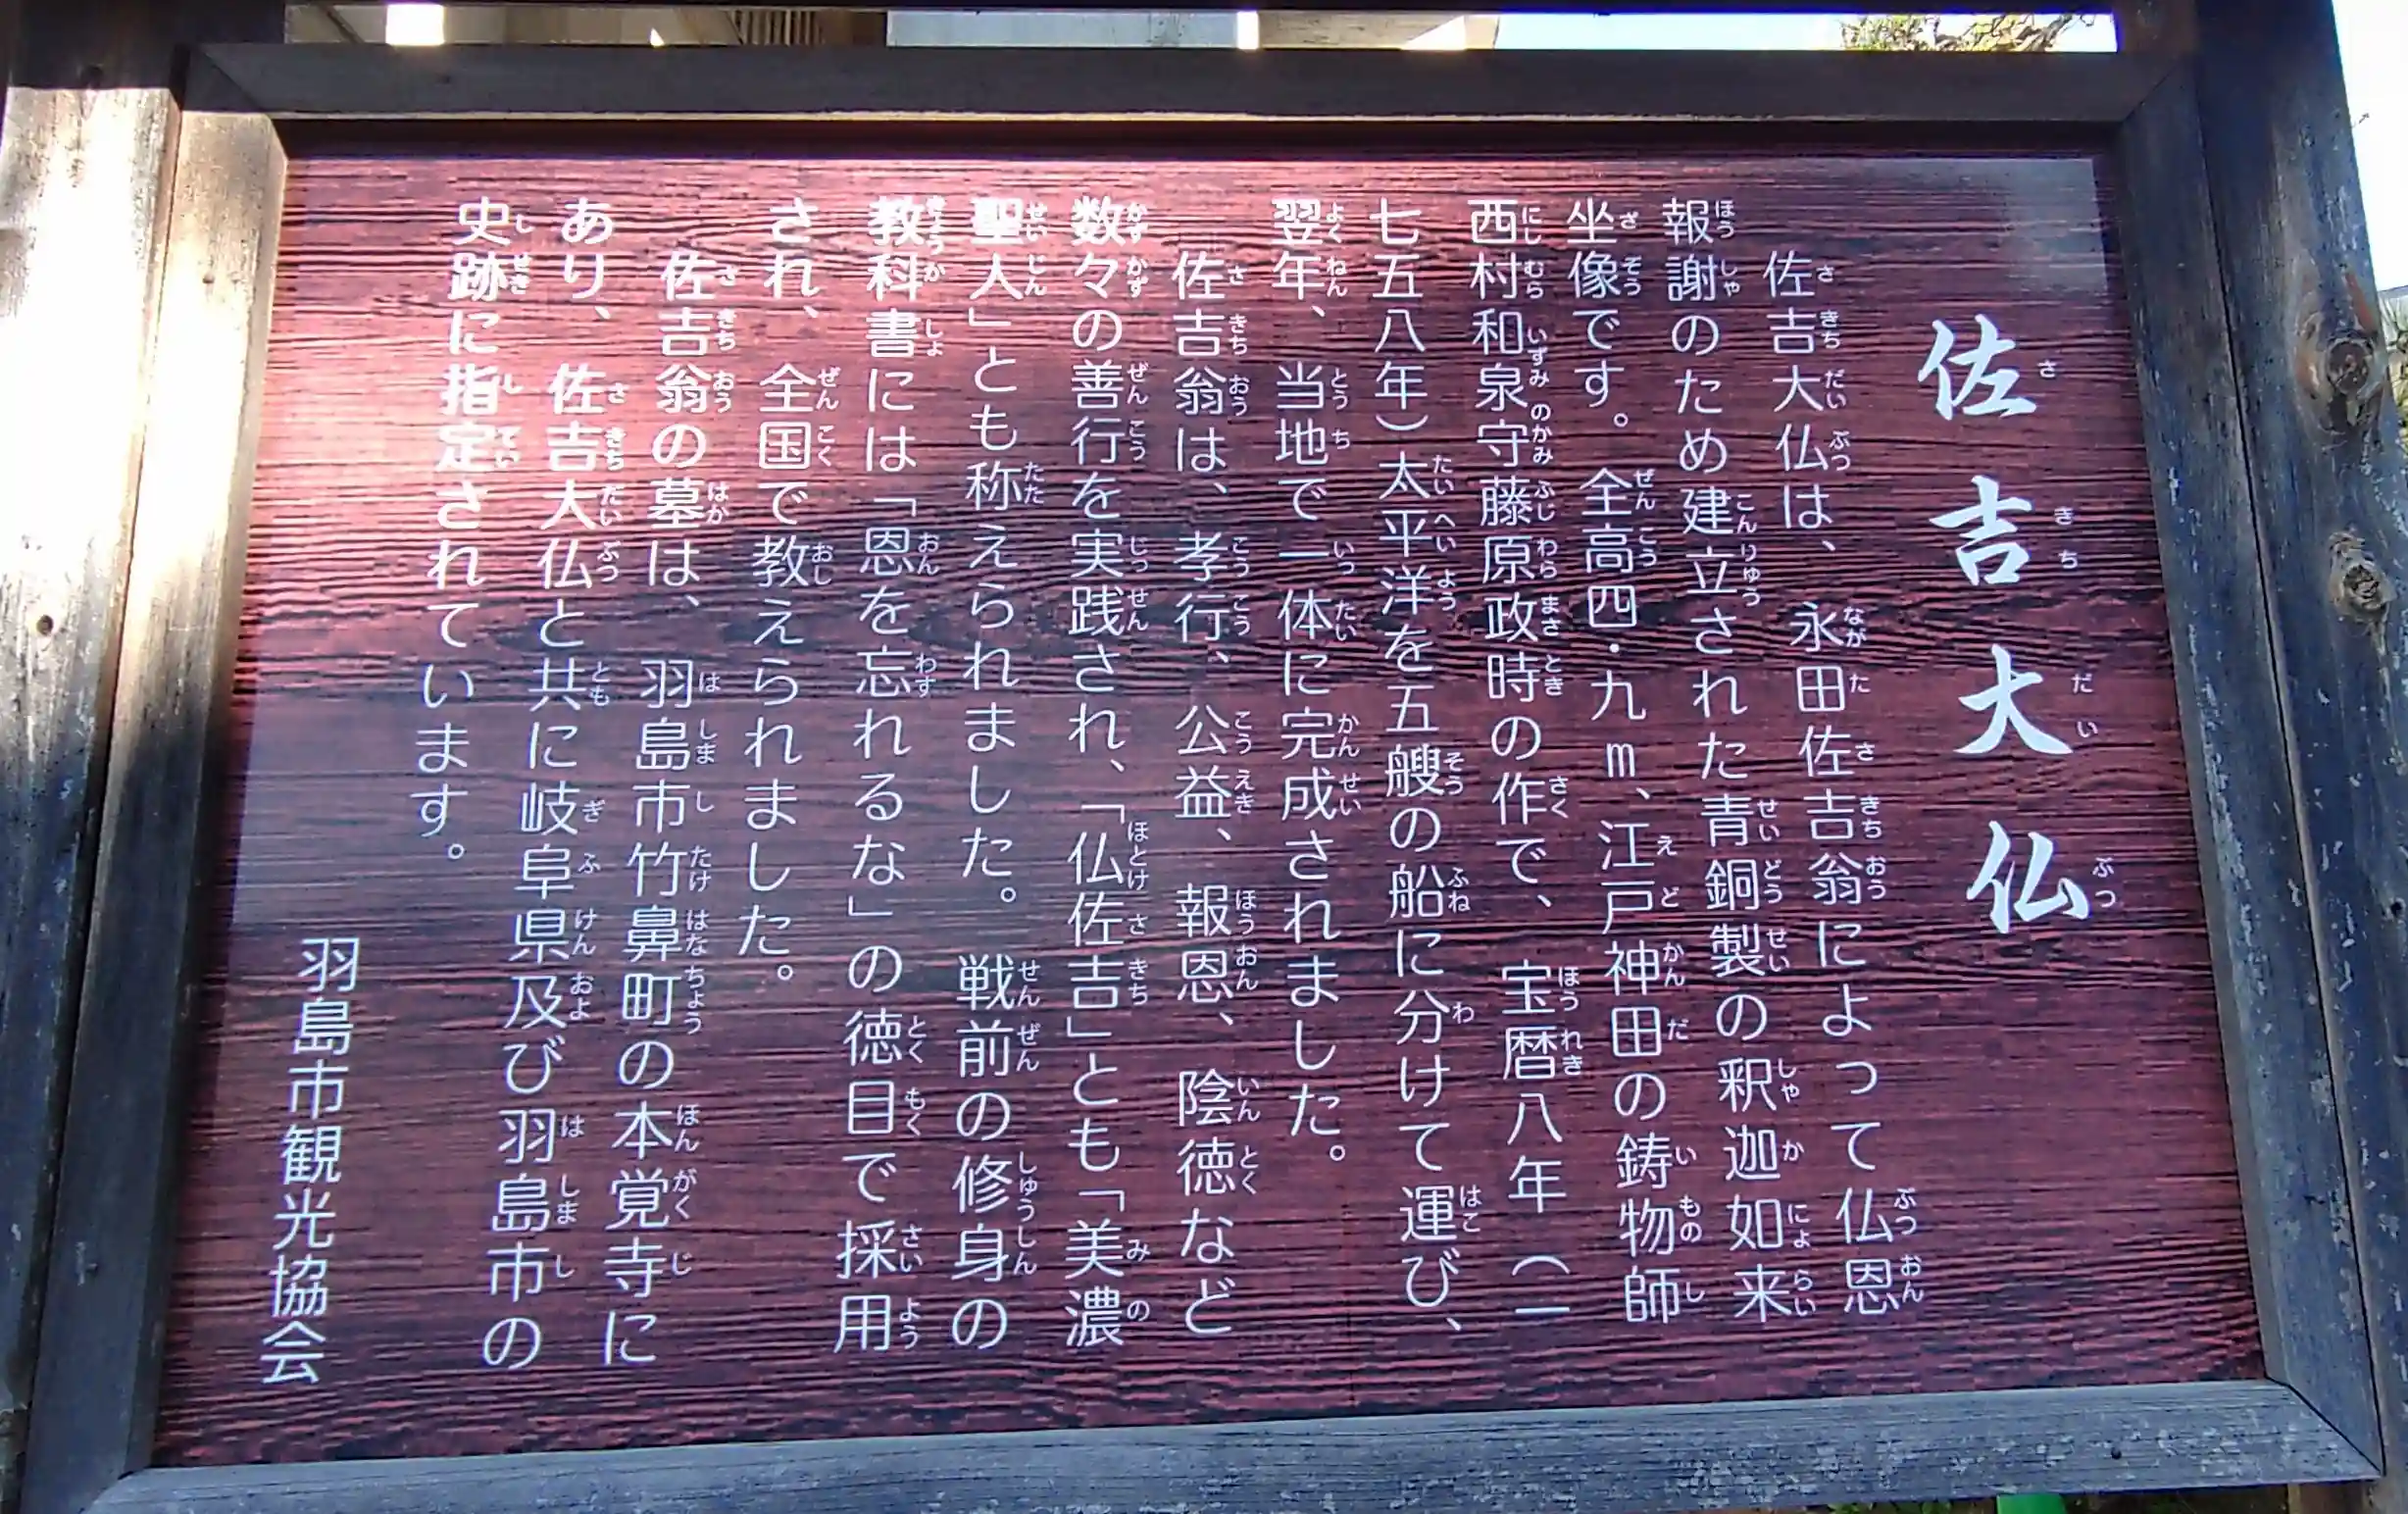 佐吉大仏
佐吉大仏は、永田佐吉翁によって仏恩
報謝のため建立された青銅製の釈迦如来
坐像です。全高四・九m、江戸神田の鋳物師
西村和泉守藤原政時の作で、宝暦八年（一
七五八年）太平洋を五艘の船に分けて運び、
翌年、当地で一体に完成されました。
佐吉翁は、孝行、公益、報恩、陰徳など
数々の善行を実践され、「仏佐吉」とも「美濃
聖人」とも称えられました。戦前の修身の
教科書には「恩を忘れるな」の徳目で採用
され、全国で教えられました。
佐吉翁の墓は、羽島市竹鼻町の本覚寺に
あり、佐吉大仏と共に岐阜県及び羽島市の
史跡に指定されています。
羽島市観光協会